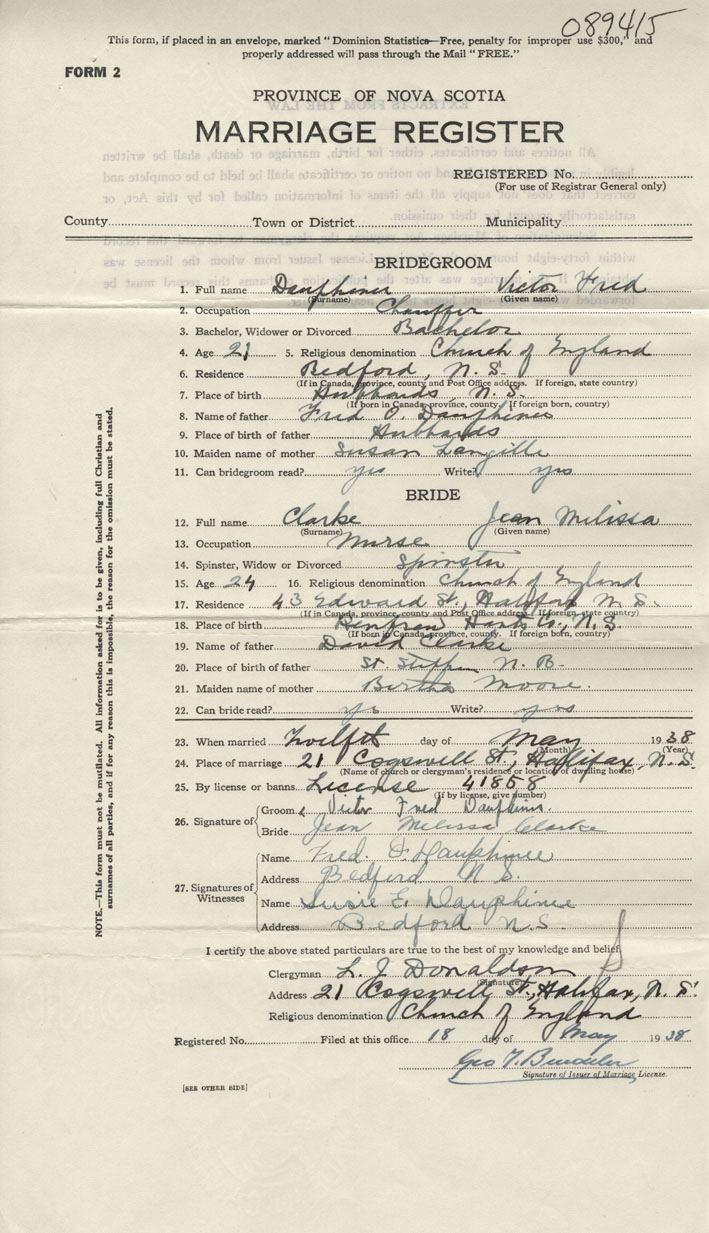 089415
This form, if placed in an envelope, marked "Dominion Statistics—Free, penalty for improper use $300," and
properly addressed will pass through the Mail "FREE."
FORM 2
PROVINCE OF NOVA SCOTIA
MARRIAGE REGISTER
REGISTERED No.
(For use of Registrar General only)
County Town or District Municipality
BRIDEGROOM
1. Full name Dauphinee Victor Fred
(Surname) (Given name)
2. Occupation Chauffer
3. Bachelor, Widower or Divorced Bachelor
4. Age 21 5. Religious denomination Church of England
6. Residence Bedford, N. S.
(If in Canada, province, county and Post Office address. If foreign, state country)
7. Place of birth Hubbards, N. S.
(If born in Canada, province, county. If foreign born, country)
8. Name of father Fred Dauphinee
9. Place of birth of father Hubbards
10. Maiden name of mother Susan Langille
11. Can bridegroom read? yes Write? yes
BRIDE
12. Full name Clarke Jean Milissa
(Surname) (Given name)
13. Occupation Nurse
14. Spinster, Widow or Divorced Spinster
15. Age 24 16. Religious denomination Church of England
17. Residence 43 Edward St., Halifax N. S.
(If in Canada, province, county and Post Office address. If foreign, state country)
18. Place of birth Renfrew Hants Co., N. S.
(If born in Canada, province, county. If foreign born, country)
19. Name of father David Clarke
20. Place of birth of father St Stephen N. B.
21. Maiden name of mother Bertha Moore.
22. Can bride read? yes Write? yes
23. When married Twelfth day of May 1938
(Month) (Year)
24. Place of marriage 21 Cogswell St., Halifax, N. S.
(Name of church or clergyman's residence or location of dwelling house)
25. By license or banns. License 41858
(If by license, give number)
26. Signature of Groom Victor Fred Dauphinee
Bride Jean Melissa Clarke
27. Signatures of Witnesses
Name Fred Dauphinee
Address Bedford N. S.
Name Susie E. Dauphinee
Address Bedford N. S.
I certify the above stated particulars are true to the best of my knowledge and belief.
Clergyman L. J. Donaldson
(Signature)
Address 21 Cogswell St., Halifax, N. S.
Religious denomination Church of England
Registered No. Filed at this office 18 day of May 1938
Geo
Signature of Issuer of Marriage License.
[SEE OTHER SIDE]
NOTE.—This form must not be mutilated. All information asked for is to be given, including full Christian and
surnames of all parties, and if for any reason this is impossible, the reason for the omission must be stated.